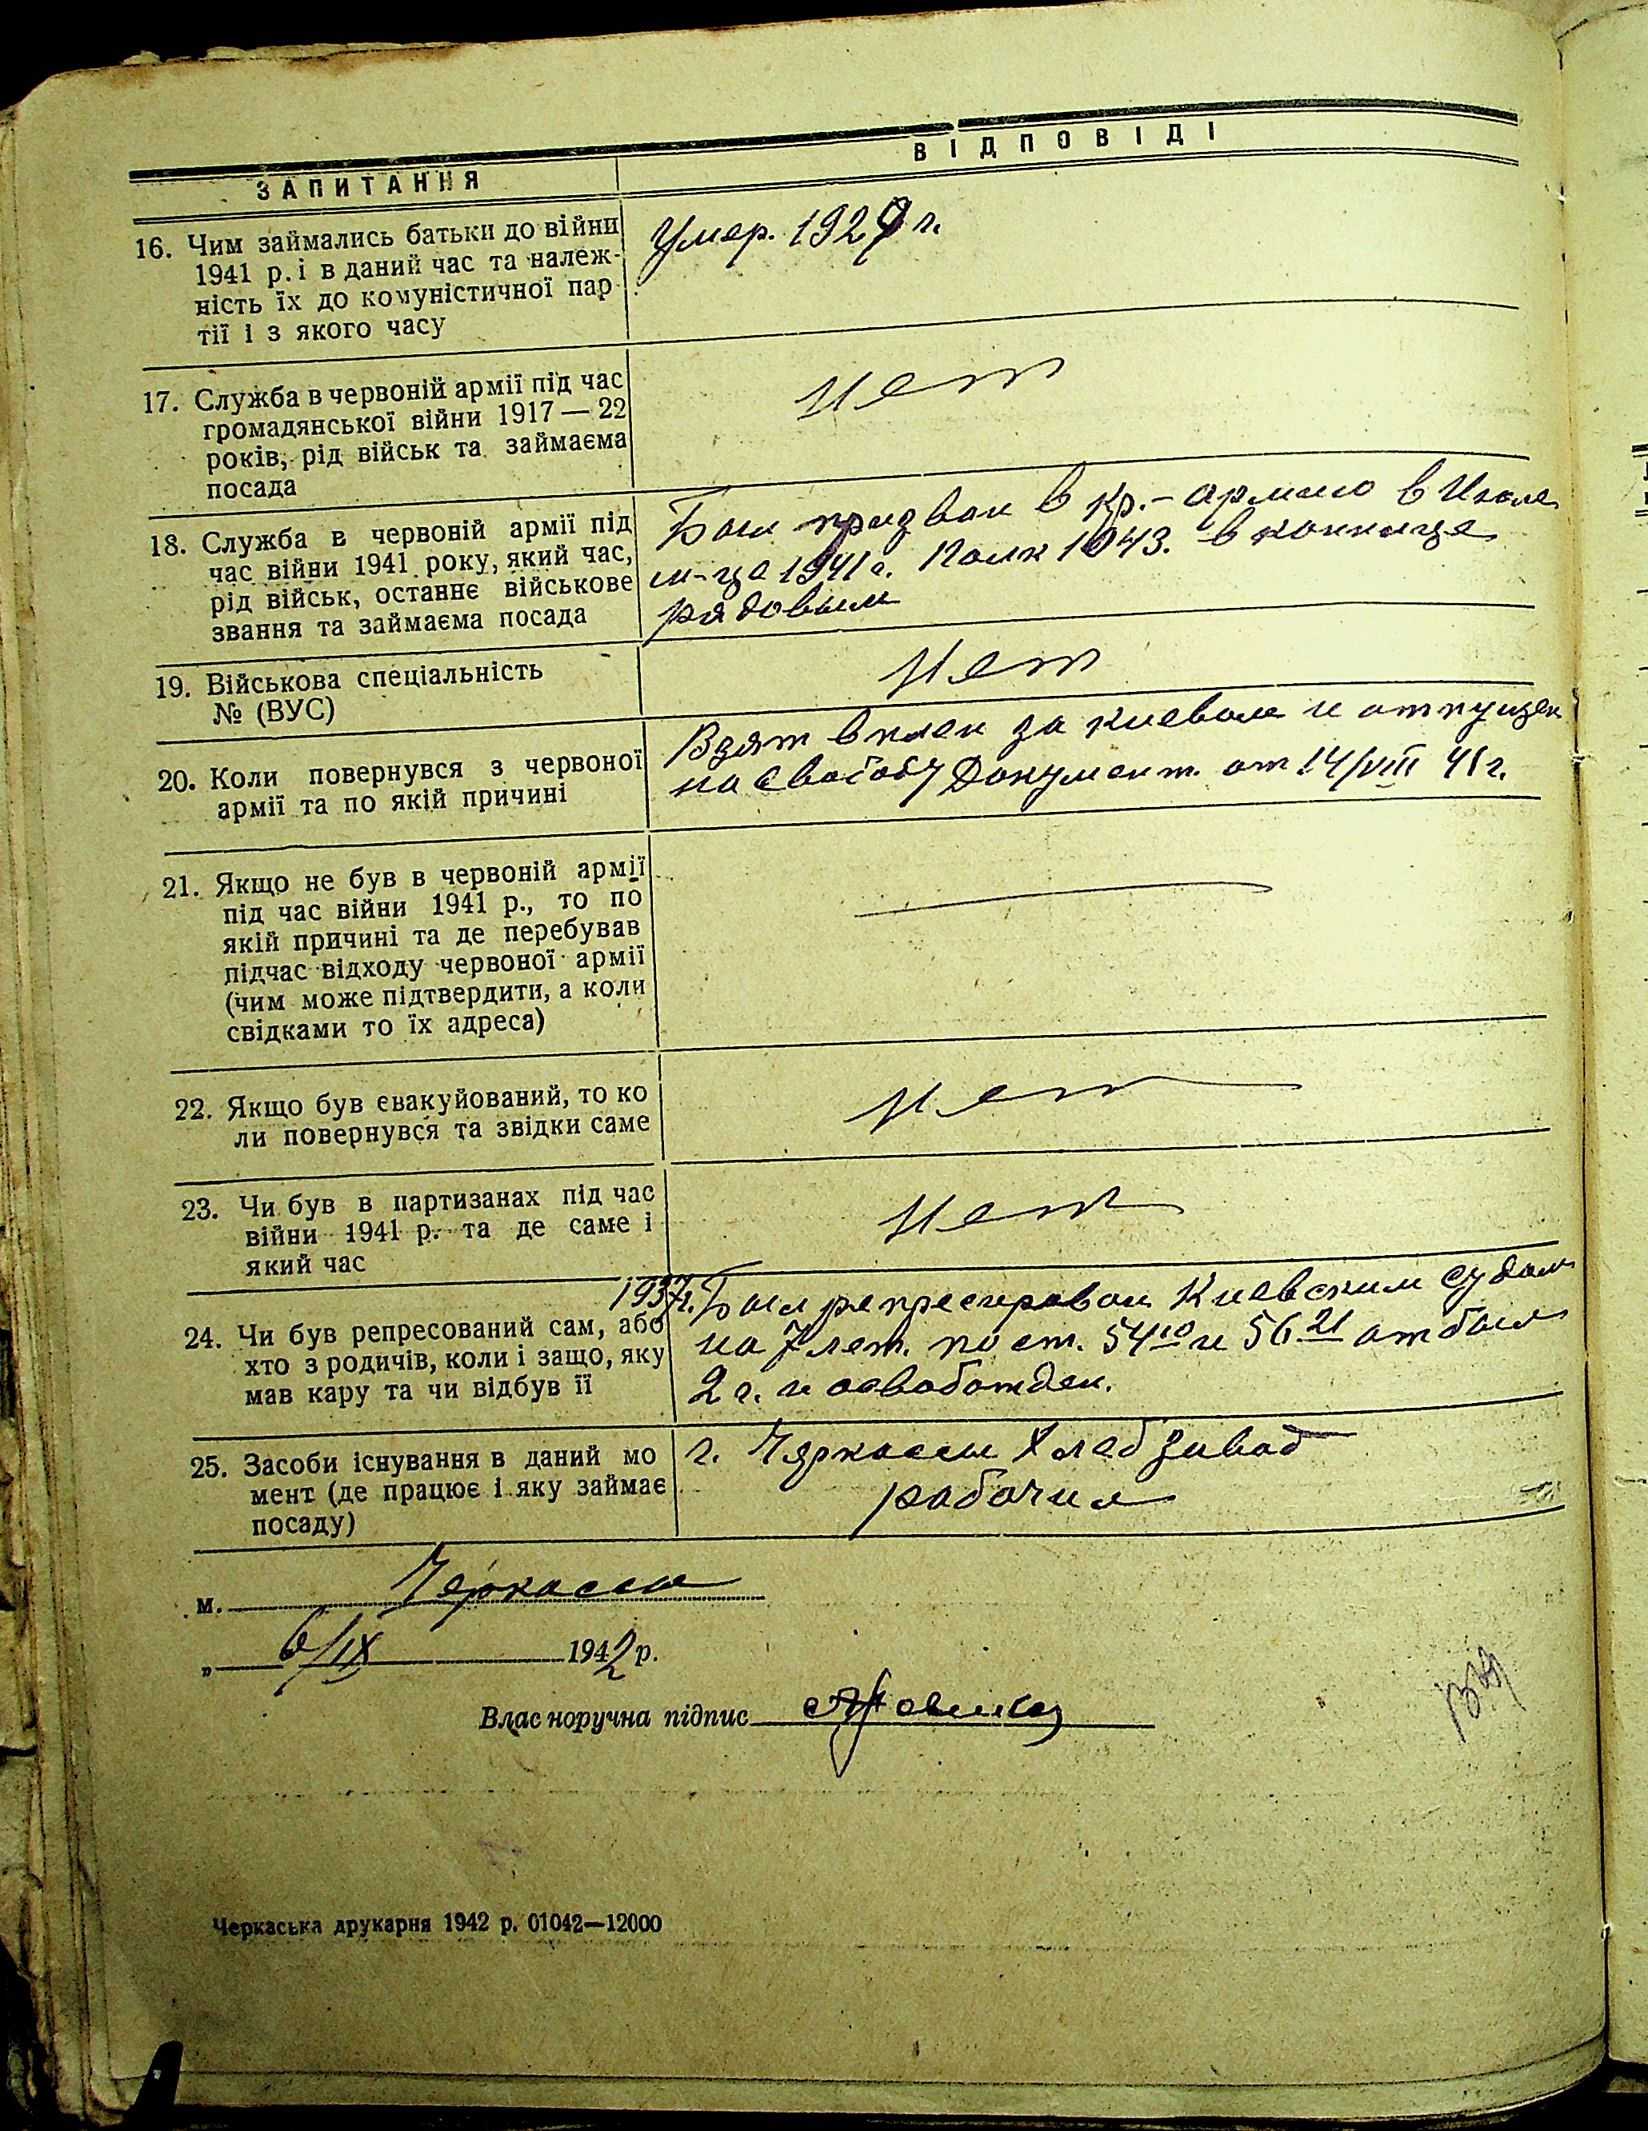 ЗАПИТАННЯ
ВІДПОВІДІ
16. Чим займались батьки до війни
1941 р. і в даний час та належ-
ність їх до комуністичної пар
тії і з якого часу
Умер. 1929 г.
17. Служба в червоній армії під час
громадянської війни 1917 — 22
років, рід військ та займаєма
посада
Нет
18. Служба в червоній армії під
час війни 1941 року, який час,
рід військ, останнє військове
звання та займаєма посада
Был призван в кр.-армию в Июле
м-це 1941 г. Полк 1043. в коннице
рядовым
19. Військова спеціальність
№ (ВУС)
Нет
20. Коли повернувся з червоної
армії та по якій причині
Взят в плен за Киевом и отпущен
на свободу Документ. от 14/VIII 41 г.
21. Якщо не був в червоній армії
під час війни 1941 р., то по
якій причині та де перебував
підчас відходу червоної армії
(чим може підтвердити, а коли
свідками то їх адреса)
22. Якщо був евакуйований, то ко
ли повернувся та звідки саме
Нет
23. Чи був в партизанах під час
війни 1941 р. та де саме і
який час
Нет
24. Чи був репресований сам, або
хто з родичів, коли і защо, яку
мав кару та чи відбув її
1937г. Был репресирован Киевским судом
на 7 лет. по ст. 54¹⁰ и 56²¹ отбыл
2 г. и освобожден.
25. Засоби існування в даний мо
мент (де працює і яку займає
посаду)
г. Черкассы Хлебзавод
рабочим
м. Черкассы
„ 6/IX 1942 р.
Власноручна підпис
Черкаська друкарня 1942 р. 01042—12000